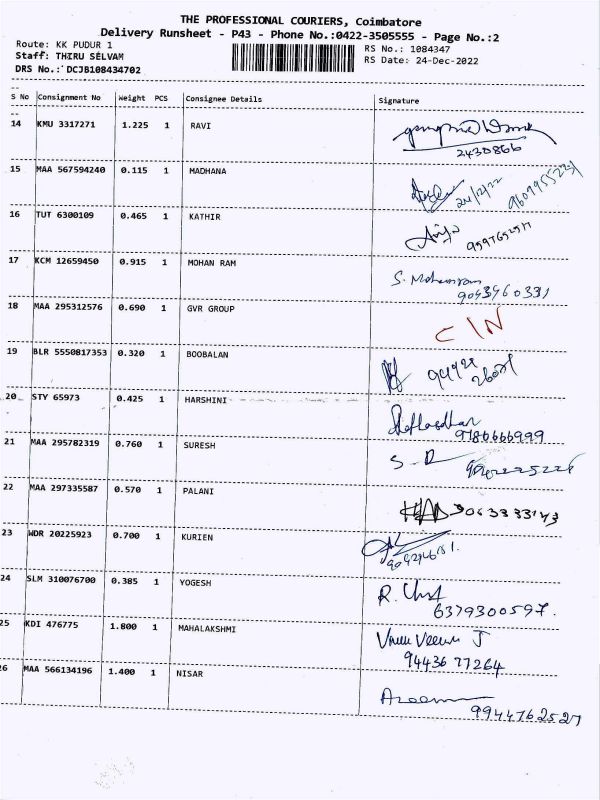 THE PROFESSIONAL COURIERS, Coimbatore
Delivery Runsheet - P43 - Phone No.:0422-3505555 - Page No.:2
Route: KK PUDUR 1
RS No.: 1084347
Staff: THIRU SELVAM
RS Date: 24-Dec-2022
DRS No.: DCJB108434702
S No Consignment No Weight PCS Consignee Details Signature
14 KMU 3317271 1.225 1 RAVI
2430866
15 MAA 567594240 0.115 1 MADHANA
24/12/22
16 TUT 6300109 0.465 1 KATHIR
17 KCM 12659450 0.915 1 MOHAN RAM
S. Mohanram
9043960331
18 MAA 295312576 0.690 1 GVR GROUP
C/N
19 BLR 5550817353 0.320 1 BOOBALAN
20 STY 65973 0.425 1 HARSHINI
9786666999
21 MAA 295782319 0.760 1 SURESH
22 MAA 297335587 0.570 1 PALANI
23 WDR 20225923 0.700 1 KURIEN
24 SLM 310076700 0.385 1 YOGESH
6379300597.
25 KDI 476775 1.800 1 MAHALAKSHMI
9443677264
26 MAA 566134196 1.400 1 NISAR
Azeem
9944762527